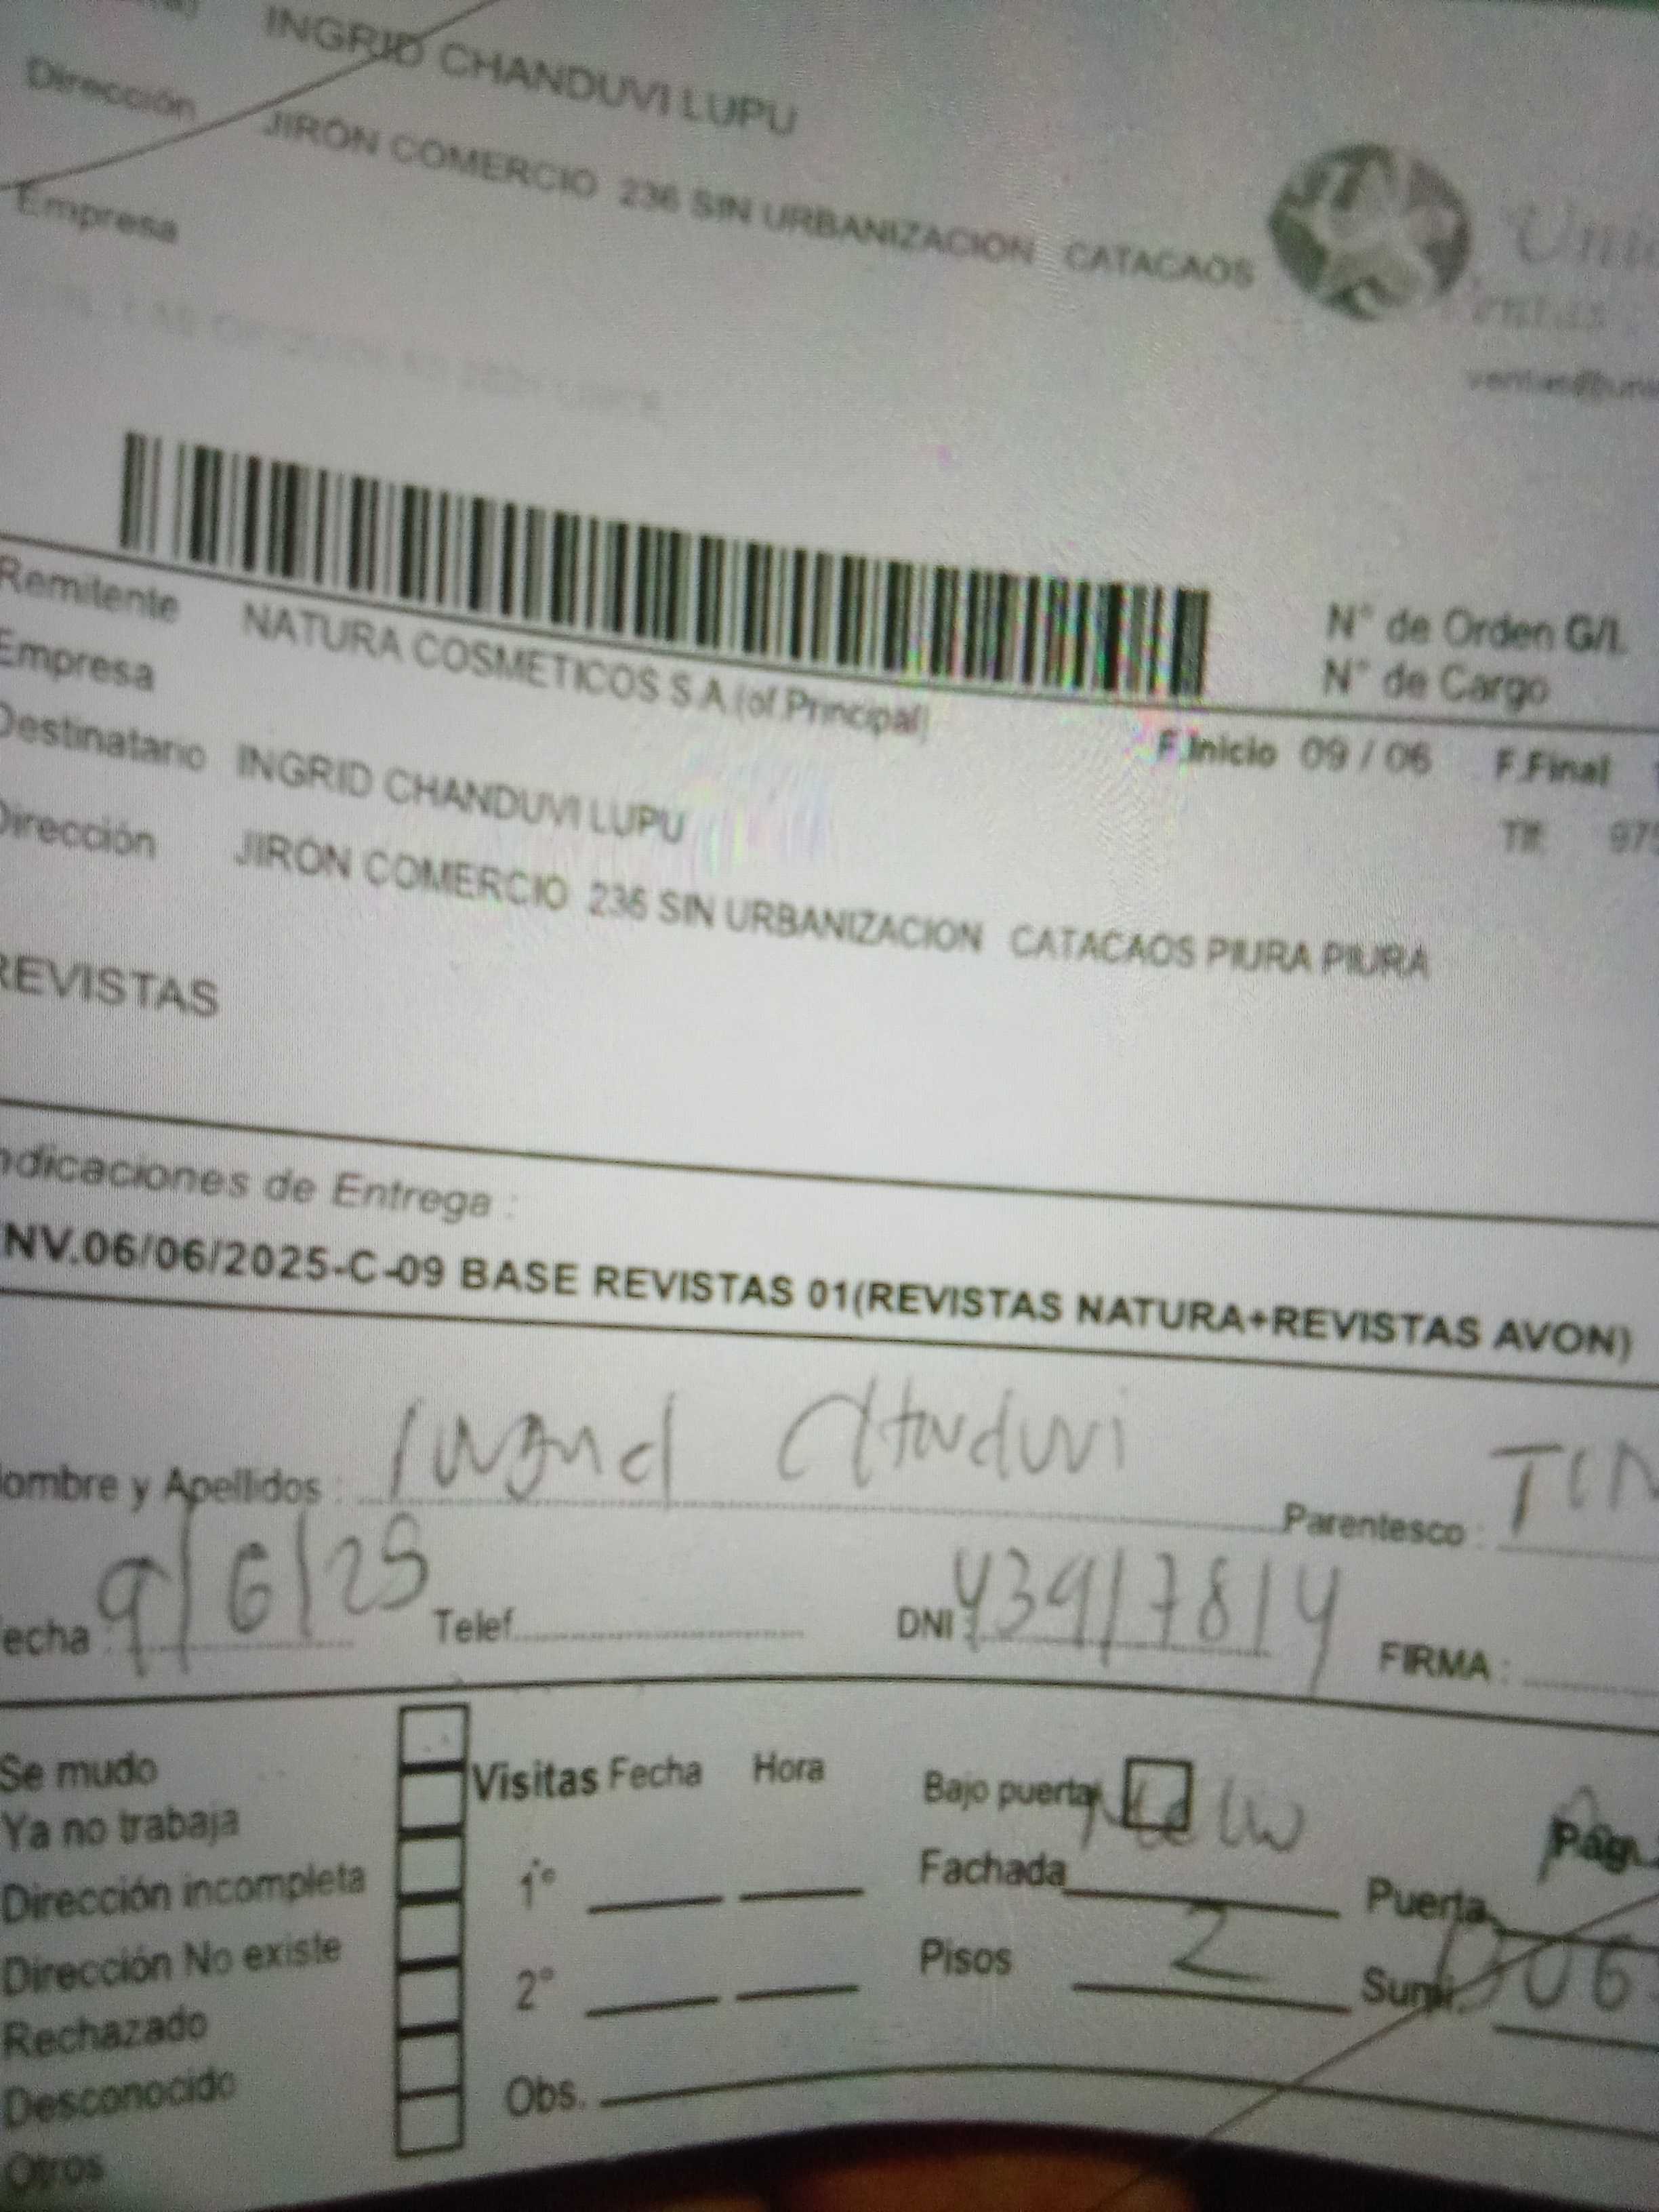 INGRID CHANDUVI LUPU
Dirección JIRÓN COMERCIO 236 SIN URBANIZACION CATACAOS
Empresa
N° de Orden G/L
N° de Cargo
Remitente NATURA COSMETICOS S.A.(of.Principal)
Empresa F.Inicio 09 / 06 F.Final
Destinatario INGRID CHANDUVI LUPU
Dirección JIRÓN COMERCIO 236 SIN URBANIZACION CATACAOS PIURA PIURA
REVISTAS
ndicaciones de Entrega :
NV.06/06/2025-C-09 BASE REVISTAS 01(REVISTAS NATURA+REVISTAS AVON)
ombre y Apellidos : Ingrid Chanduvi Parentesco :
echa : 9/6/25 Telef. DNI 43917814 FIRMA :
Se mudo
Visitas Fecha Hora Bajo puerta Pág.
Ya no trabaja
Dirección incompleta 1° Fachada Puerta
Dirección No existe
2° Pisos 2 Sumi.
Rechazado
Desconocido Obs.
Otros